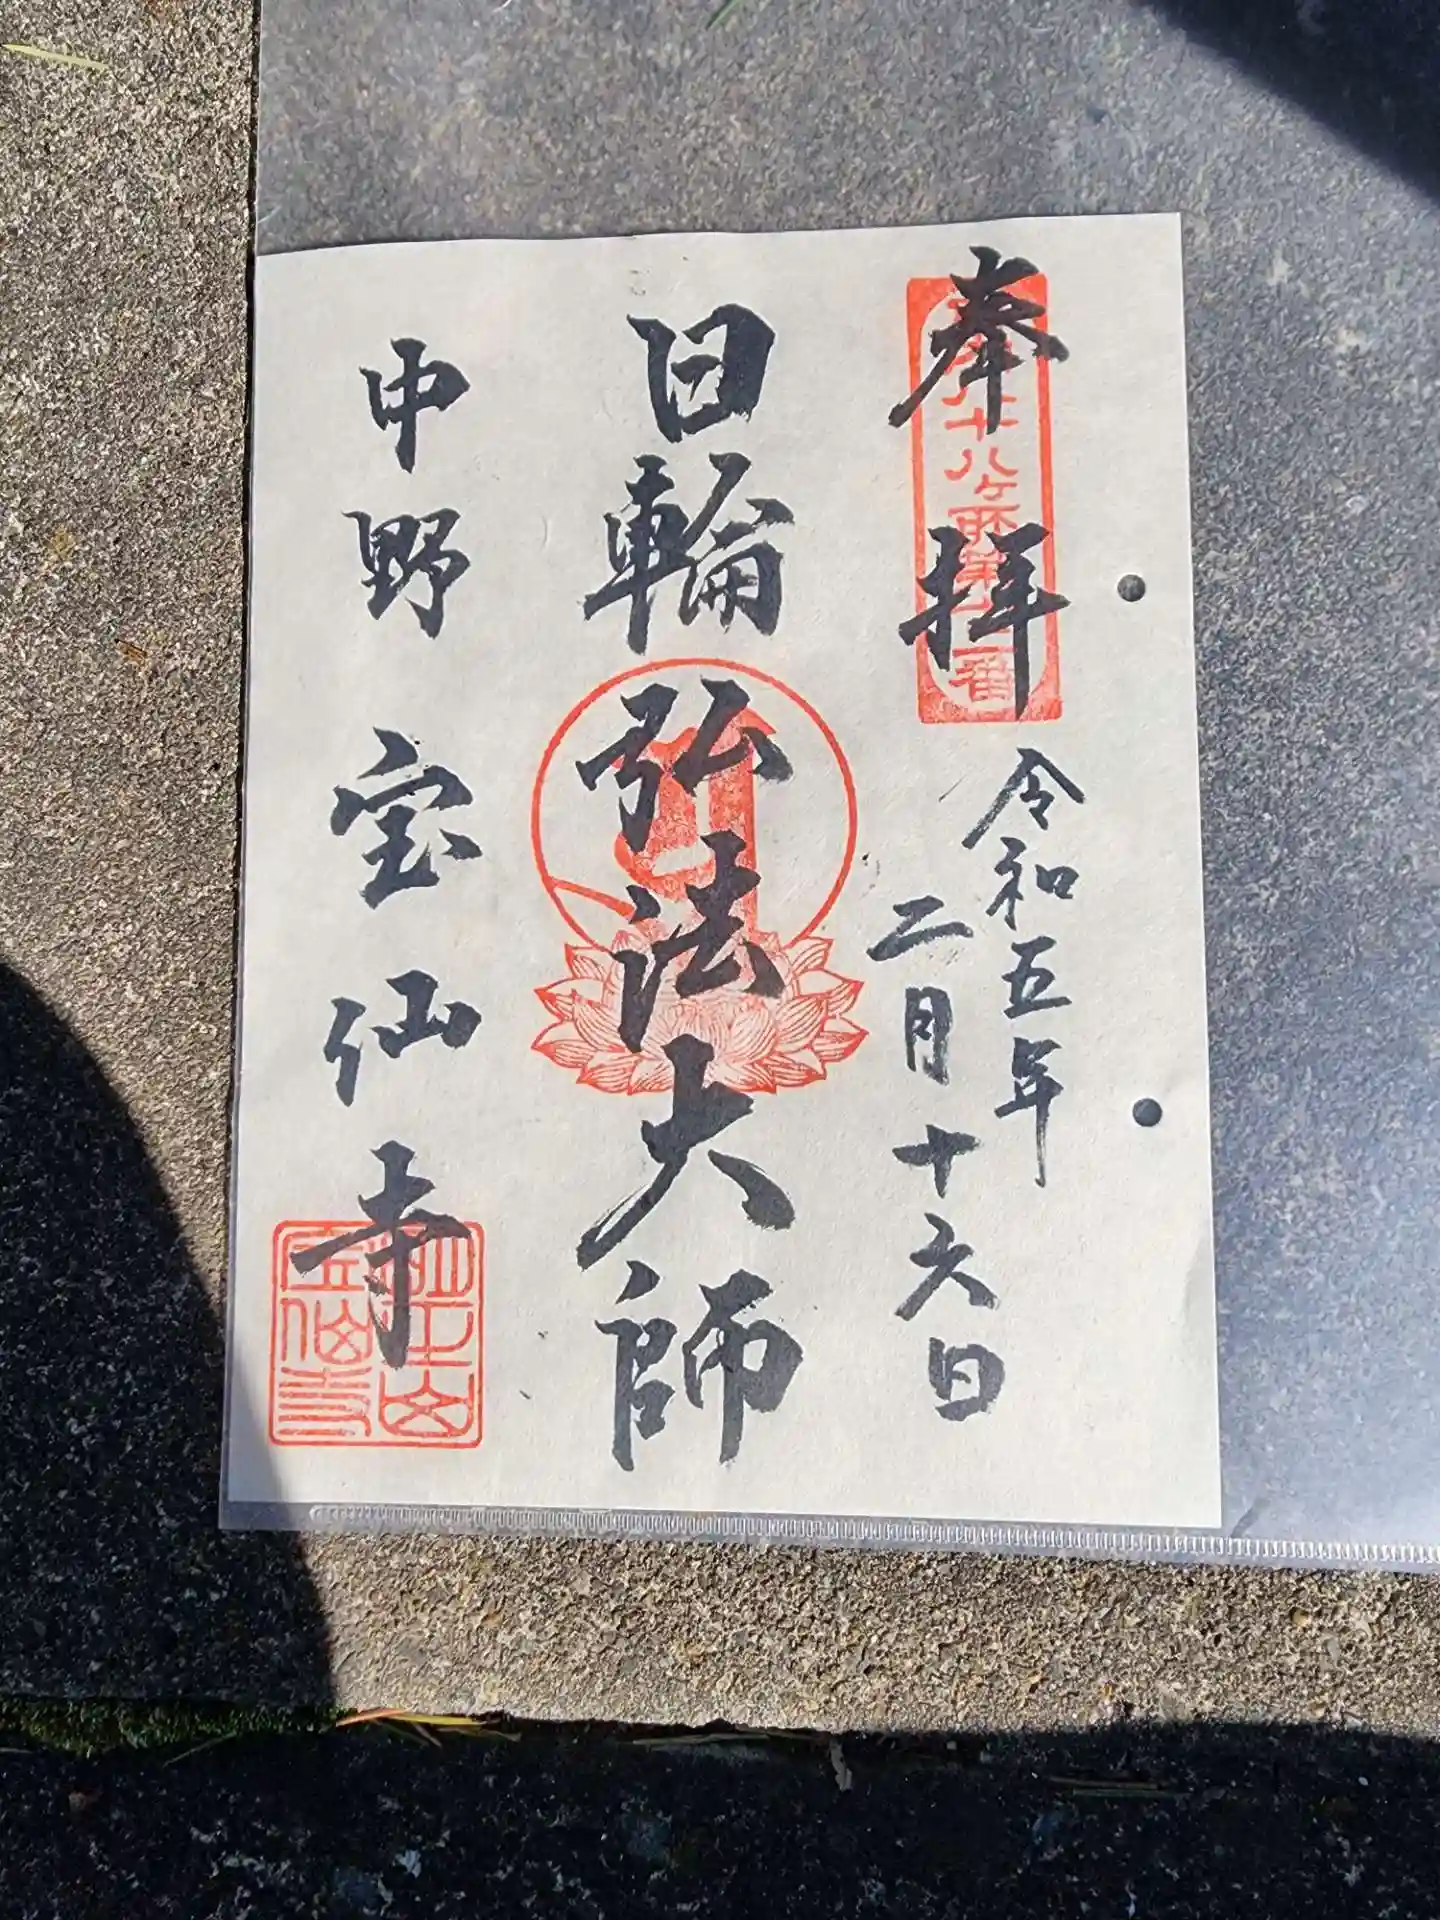 奉拝
八十八ヶ所第
番
令和五年
二月十六日
日輪弘法大師
中野宝仙寺
明王山
宝仙寺